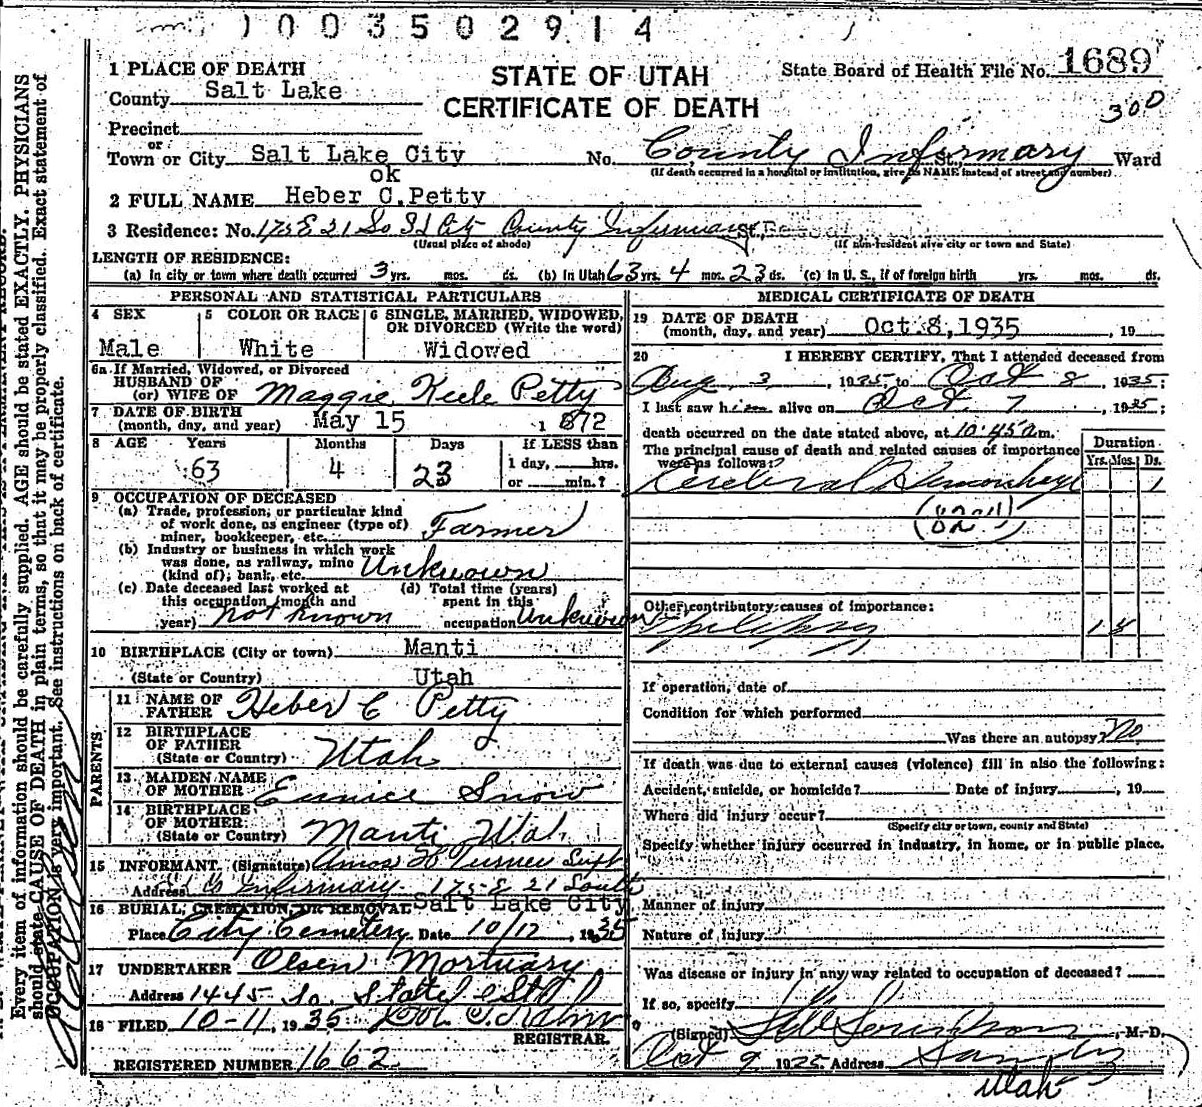 1003502914
1 PLACE OF DEATH
County Salt Lake
STATE OF UTAH
CERTIFICATE OF DEATH
State Board of Health File No. 1689
300
Precinct
or
Town or City Salt Lake City No. County Infirmary St., Ward
(If death occurred in a hospital or institution, give its NAME instead of street and number)
ok
2 FULL NAME Heber C.Petty
3 Residence: No. 175 E 21 So S L City County Infirmary St.,
(Usual place of abode) (If non-resident give city or town and State)
LENGTH OF RESIDENCE:
(a) In city or town where death occurred 3 yrs. mos. ds. (b) In Utah 63 yrs. 4 mos. 23 ds. (c) In U. S., if of foreign birth yrs. mos. ds.
PERSONAL AND STATISTICAL PARTICULARS
4 SEX 5 COLOR OR RACE 6 SINGLE, MARRIED, WIDOWED,
OR DIVORCED (Write the word)
Male White Widowed
6a If Married, Widowed, or Divorced
HUSBAND OF
(or) WIFE OF Maggie Keele Petty
7 DATE OF BIRTH
(month, day, and year) May 15 1872
8 AGE Years Months Days If LESS than
63 4 23 1 day, hrs.
or min.?
9 OCCUPATION OF DECEASED
(a) Trade, profession, or particular kind
of work done, as engineer (type of)
miner, bookkeeper, etc. Farmer
(b) Industry or business in which work
was done, as railway, mine
(kind of); bank, etc. Unknown
(c) Date deceased last worked at
this occupation (month and
year) not known
(d) Total time (years)
spent in this
occupation Unknown
10 BIRTHPLACE (City or town) Manti
(State or Country) Utah
PARENTS
11 NAME OF
FATHER Heber C Petty
12 BIRTHPLACE
OF FATHER
(State or Country) Utah
13 MAIDEN NAME
OF MOTHER Eunice Snow
14 BIRTHPLACE
OF MOTHER
(State or Country) Manti Utah
15 INFORMANT. (Signature) Amos Turner Supt
Address Co Infirmary 175 E 21 South
16 BURIAL, CREMATION, OR REMOVAL Salt Lake City
Place City Cemetery Date 10/12, 1935
17 UNDERTAKER Olsen Mortuary
Address 1445 So. State St
18 FILED 10-11, 1935
REGISTRAR.
REGISTERED NUMBER 1662
MEDICAL CERTIFICATE OF DEATH
19 DATE OF DEATH
(month, day, and year) Oct 8,1935, 19
20 I HEREBY CERTIFY, That I attended deceased from
Aug 3, 1935, to Oct 8, 1935;
I last saw him alive on Oct. 7, 1935;
death occurred on the date stated above, at 10:45 a m.
The principal cause of death and related causes of importance
were as follows:
Duration
Yrs. Mos. Ds.
Cerebral Hemorrhage 1
Other contributory causes of importance:
Epilepsy
If operation, date of
Condition for which performed
Was there an autopsy? No
If death was due to external causes (violence) fill in also the following:
Accident, suicide, or homicide? Date of injury , 19
Where did injury occur?
(Specify city or town, county and State)
Specify whether injury occurred in industry, in home, or in public place.
Manner of injury
Nature of injury
Was disease or injury in any way related to occupation of deceased?
If so, specify
(Signed) , M. D.
Oct 9 1935 Address Sandy
Utah
Every item of information should be carefully supplied. AGE should be stated EXACTLY. PHYSICIANS
should state CAUSE OF DEATH in plain terms, so that it may be properly classified. Exact statement of
OCCUPATION is very important. See instructions on back of certificate.